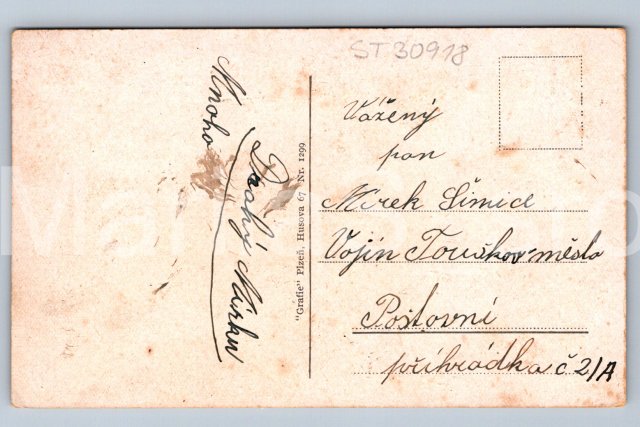 ST 30918
Mnoho
Drahý Mirku
"Grafie" Plzeň, Husova 67 Nr. 1299
Vážený
pan
Mirek Šimice
Vojín Touškov-město
Poštovní
příhrádka č 2/A